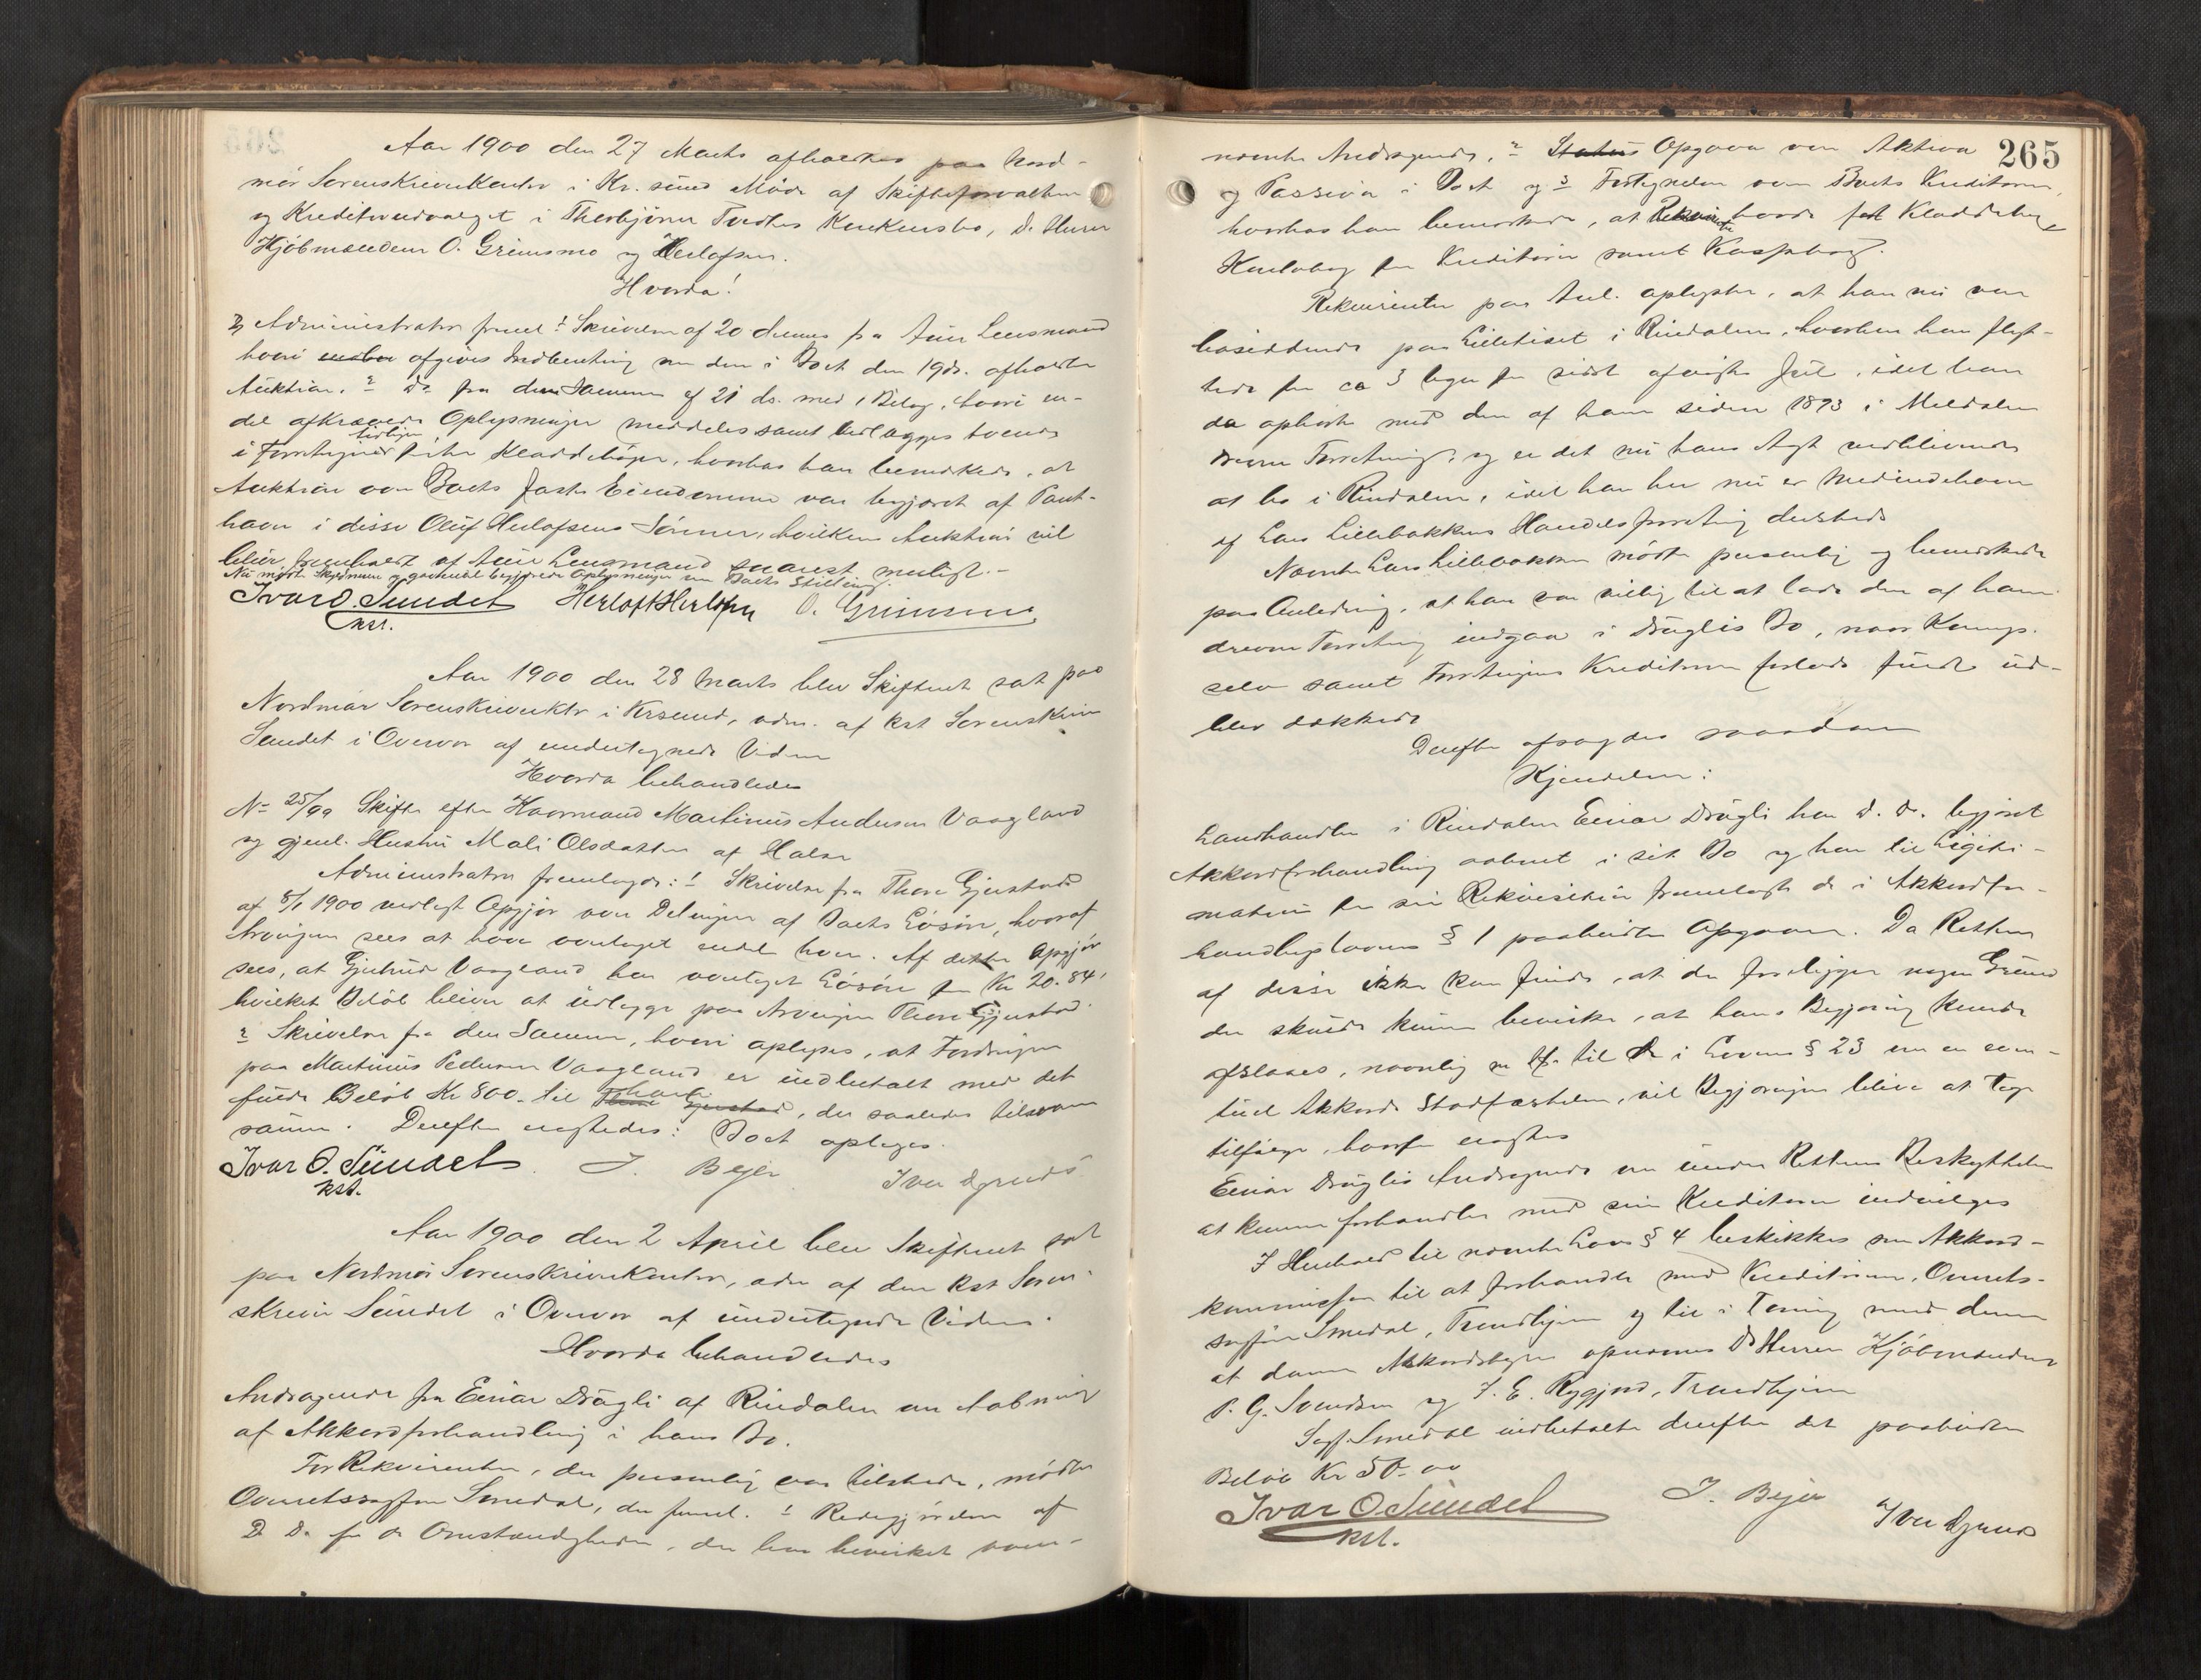 Aar 1900 den 27 Marts afholdtes paa Nord-
mør Sorenskriverkontor i Kr.sund Møde af Skifteforvalteren
og Kreditorudvalget i Thorbjørn Konkursbo, d. Herrer
Kjøbmændene O. Grimsmo og Herlofsen.
Hvorda!
Administrator freml. 1 Skrivelse af 20 dennes fra Aure Lensmand
hvori afgives Indberetning om den i Boet den 19 ds. afholdte
Auktion. 2 Do fra den Samme af 21 ds. med 1 Bilag, hvori en-
del afkrævede Oplysninger meddeles samt vedlægges tvende
i Forretningen tidligere førte Kladdebøger, hvorhos han bemærkede, at
Auktion over Boets faste Eiendomme var begjært af Pant-
haver i disse Oluf Herlofsens Sønner, hvilken Auktion vil
blive fremholdt af Aure Lensmand snarest muligt.-
Nu mødte og begjærede Oplysninger om Boets Stilling.
Ivar O. Sundet Herlof Herlofsen O. Grimsmo
kst.
Aar 1900 den 28 Marts blev Skifteret sat paa
Nordmør Sorenskriverktr i Krsund, adm. af kst Sorenskriver
Sundet i Overvær af undertegnede Vidner
Hvorda behandledes
No 25/99 Skifte efter Kaarmand Martinus Andersen Vaagland
og gjenl. Hustru Mali Olsdatter af Halse
Administrator fremlagde: 1 Skrivelse fra Thore Gjerstad
af 8/1 1900 vedlagt Opgjør over Delingen af Boets Løsøre, hvoraf
Arvingerne sees at have overtaget endel hver. Af dette Opgjør
sees, at Gjertrud Vaagland har overtaget Løsøre for Kr 20.84,
hvilket Beløb bliver at udlægge paa Arvingen Thore Gjerstad.
2 Skrivelse fra den Samme, hvori oplyses, at Fordringen
paa Martinus Pedersen Vaagland er indbetalt med det
fulde Beløb Kr 800.- til Thore Gjerstad, der saaledes tilsvarer
samme. Derefter eragtedes: Boet oplyses.
Ivar O. Sundet. J. Bejer Iver
kst.
Aar 1900 den 2 April blev Skifteret sat
paa Nordmør Sorenskriverkontor, adm af den kst Soren-
skriver Sundet i Overvær af undertegnede Vidner.
Hvorda behandledes
Andragende fra Einar Drugli af Rindalen om Aabning
af Akkordforhandling i hans Bo.
For Rekvirenten, der personlig var tilstede, mødte
Overretssagfører Smedal, der freml. 1 Redegjørelse af
D. D. for de Omstændigheder, der har bevirket oven-
265
nævnte Andragende, 2 Status Opgave over Aktiva
og Passiva i Boet og 3 Fortegnelse over Boets Kreditorer,
hvorhos han bemærkede, at Rekvirenten havde ført Kladdebog
Kontobog for Kreditorer samt Kassabog.
Rekvirenten paa Anl. oplyste, at han nu var
bosiddende paa i Rindalen, hvorhen han flyt-
tede for ca 3 Uger før sidst afvigte Jul, idet han
da ophørte med den af ham siden 1893 i Meldalen
drevne Forretning, og er det nu hans Agt vedblivende
at bo i Rindalen, idet han her nu er Medindehaver
af Lars Lillebakkens Handelsforretning dersteds
Nævnte Lars Lillebakken mødte personlig og bemærkede
paa Anledning, at han var villig til at lade den af ham
drevne Forretning indgaa i Druglis Bo, naar Komp.
selv samt Forretningens Kreditorer forlods fuldt ud-
blev dækkede
Derefter afsagdes saadan
Kjendelse:
Landhandler i Rindalen Einar Drugli har d. D. begjært
Akkordforhandling aabnet i sit Bo og har til Legiti-
mation for sin Rekvisition fremlagt de i Akkordfor-
handlingslovens § 1 paabudte Opgaver. Da Retten
af disse ikke kan finde, at der foreligger nogen Grund
der skulde kunne bevirke, at hans Begjæring kunde
afslaaes, navnlig m Hs. til de i Lovens § 23 om en even-
tuel Akkords Stadfæstelse, vil Begjæringen blive at tage
tilfølge, hvorfor eragtes
Einar Druglis Andragende om under Rettens Beskyttelse
at kunne forhandle med sine Kreditorer indvilges
I Henhold til nævnte Lovs § 4 beskikkes som Akkord-
kommissær til at forhandle med Kreditorerne, Overrets-
sagfører Smedal, Trondhjem og til i Forening med denne
at danne Akkordstyre opnævnes D'Herrer Kjøbmændene
P. G. Svendsen og J. E. Rygjord, Trondhjem
Sagf. Smedal indbetalte derefter det paabudte
Beløb Kr 50.00
Ivar O Sundet J. Bejer Iver
kst.